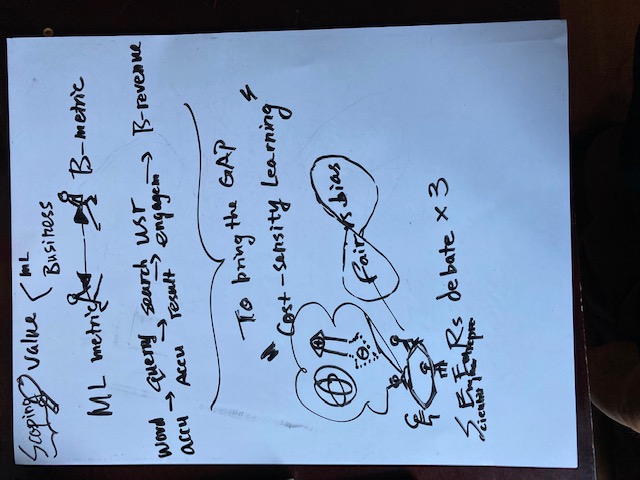 Scoping value ML
Business
ML metric B-metric
Word accu → Query Accu → search result → usr engagem → B-revenue
To bring the GAP
"Cost-sensity Learning"
Fair vs bias
S E E Rs debate x 3
cientist entrepre